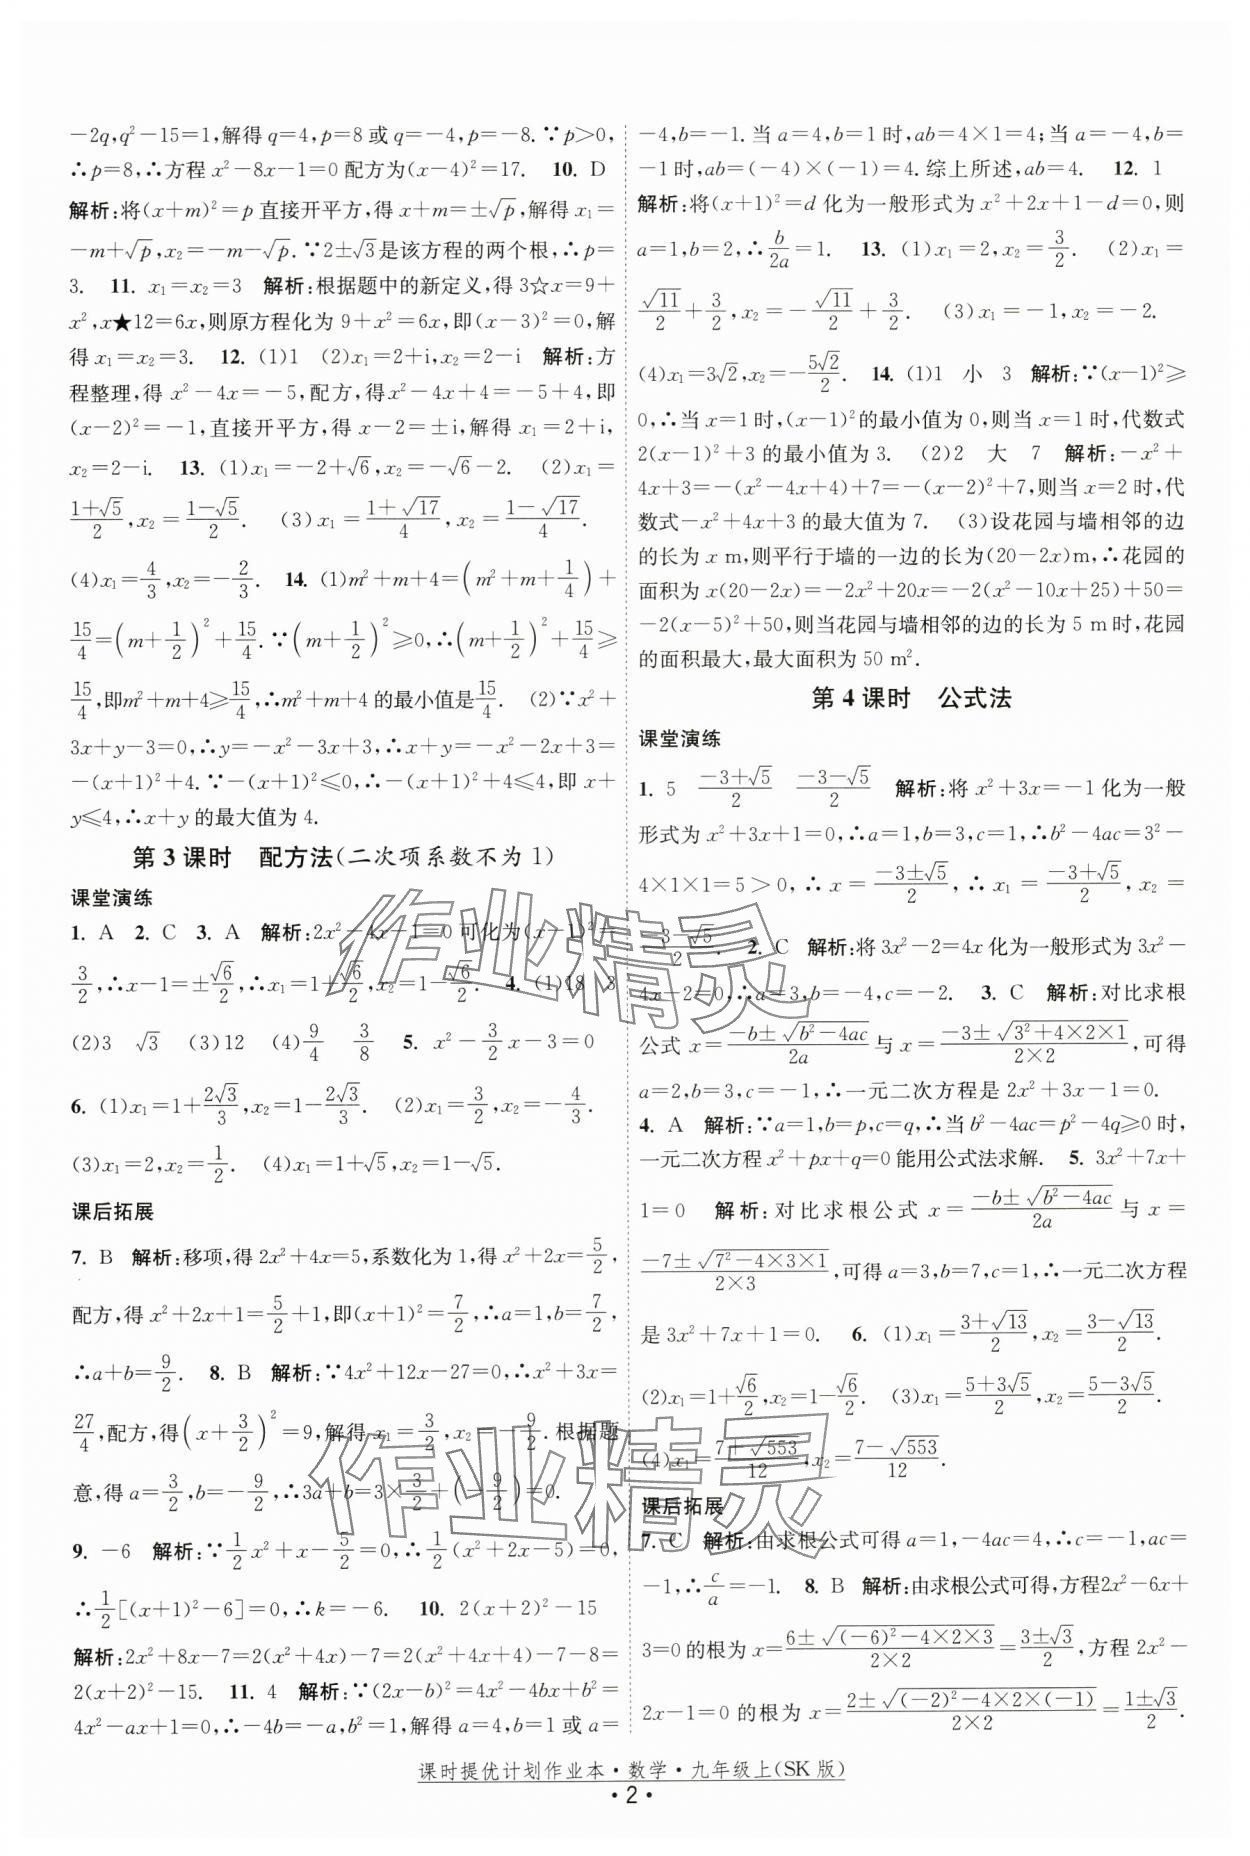 -2q,q²-15=1,解得 q=4,p=8或q=-4,p=-8.∵p>0,
∴p=8,∴方程 x²-8x-1=0配方为(x-4)²=17. 10. D
解析:将(x+m)²=p 直接开平方,得 x+m=±√p,解得 x₁=
-m+√p,x₂=-m-√p.∵2±√3是该方程的两个根,∴p=
3. 11. x₁=x₂=3 解析:根据题中的新定义,得 3☆x=9+
x²,x★12=6x,则原方程化为 9+x²=6x,即(x-3)²=0,解
得 x₁=x₂=3. 12. (1)1 (2)x₁=2+i,x₂=2-i 解析:方
程整理,得 x²-4x=-5,配方,得x²-4x+4=-5+4,即
(x-2)²=-1,直接开平方,得 x-2=±i,解得 x₁=2+i,
x₂=2-i. 13. (1)x₁=-2+√6,x₂=-√6-2. (2)x₁=
(1+√5)/2,x₂=(1-√5)/2. (3)x₁=(1+√17)/4,x₂=(1-√17)/4.
(4)x₁=4/3,x₂=-2/3. 14. (1)m²+m+4=(m²+m+1/4)+
15/4=(m+1/2)²+15/4.∵(m+1/2)²≥0,∴(m+1/2)²+15/4≥
15/4,即m²+m+4≥15/4,∴m²+m+4的最小值是15/4. (2)∵x²+
3x+y-3=0,∴y=-x²-3x+3,∴x+y=-x²-2x+3=
-(x+1)²+4.∵-(x+1)²≤0,∴-(x+1)²+4≤4,即 x+
y≤4,∴x+y 的最大值为 4.
第 3 课时 配方法(二次项系数不为 1)
课堂演练
1. A 2. C 3. A 解析:2x²-4x-1=0可化为(x-1)²=
3/2,∴x-1=±√6/2,∴x₁=1+√6/2,x₂=1-√6/2. 4. (1)18 3
(2)3 √3 (3)12 (4)9/4 3/8 5. x²-3/2x-3=0
6. (1)x₁=1+2√3/3,x₂=1-2√3/3. (2)x₁=3/2,x₂=-4/3.
(3)x₁=2,x₂=1/2. (4)x₁=1+√5,x₂=1-√5.
课后拓展
7. B 解析:移项,得 2x²+4x=5,系数化为 1,得 x²+2x=5/2,
配方,得 x²+2x+1=5/2+1,即(x+1)²=7/2,∴a=1,b=7/2,
∴a+b=9/2. 8. B 解析:∵4x²+12x-27=0,∴x²+3x=
27/4,配方,得(x+3/2)²=9,解得 x₁=3/2,x₂=-9/2.根据题
意,得 a=3/2,b=-9/2,∴3a+b=3×3/2+(-9/2)=0.
9. -6 解析:∵1/2x²+x-5/2=0,∴1/2(x²+2x-5)=0,
∴1/2[(x+1)²-6]=0,∴k=-6. 10. 2(x+2)²-15
解析:2x²+8x-7=2(x²+4x)-7=2(x²+4x+4)-7-8=
2(x+2)²-15. 11. 4 解析:∵(2x-b)²=4x²-4bx+b²=
4x²-ax+1=0,∴-4b=-a,b²=1,解得 a=4,b=1 或 a=
-4,b=-1. 当 a=4,b=1 时,ab=4×1=4;当 a=-4,b=
-1时,ab=(-4)×(-1)=4.综上所述,ab=4. 12. 1
解析:将(x+1)²=d 化为一般形式为 x²+2x+1-d=0,则
a=1,b=2,∴b/2a=1. 13. (1)x₁=2,x₂=3/2. (2)x₁=
√11/2+3/2,x₂=-√11/2+3/2. (3)x₁=-1,x₂=-2.
(4)x₁=3√2,x₂=-5√2/2. 14. (1)1 小 3 解析:∵(x-1)²≥
0,∴当 x=1 时,(x-1)²的最小值为0,则当 x=1 时,代数式
2(x-1)²+3 的最小值为 3. (2)2 大 7 解析:-x²+
4x+3=-(x²-4x+4)+7=-(x-2)²+7,则当 x=2 时,代
数式-x²+4x+3 的最大值为 7. (3)设花园与墙相邻的边
的长为 x m,则平行于墙的一边的长为(20-2x)m,∴花园的
面积为 x(20-2x)=-2x²+20x=-2(x²-10x+25)+50=
-2(x-5)²+50,则当花园与墙相邻的边的长为 5 m时,花园
的面积最大,最大面积为 50 m².
第 4 课时 公式法
课堂演练
1. 5 (-3+√5)/2 (-3-√5)/2 解析:将 x²+3x=-1 化为一般
形式为 x²+3x+1=0,∴a=1,b=3,c=1,∴b²-4ac=3²-
4×1×1=5>0,∴x=(-3±√5)/2,∴x₁=(-3+√5)/2,x₂=
(-3-√5)/2. 2. C 解析:将 3x²-2=4x 化为一般形式为 3x²-
4x-2=0,∴a=3,b=-4,c=-2. 3. C 解析:对比求根
公式 x=(-b±√(b²-4ac))/2a 与 x=(-3±√(3²+4×2×1))/(2×2),可得
a=2,b=3,c=-1,∴一元二次方程是 2x²+3x-1=0.
4. A 解析:∵a=1,b=p,c=q,∴当 b²-4ac=p²-4q≥0 时,
一元二次方程 x²+px+q=0 能用公式法求解. 5. 3x²+7x+
1=0 解析:对比求根公式 x=(-b±√(b²-4ac))/2a 与 x=
(-7±√(7²-4×3×1))/(2×3),可得 a=3,b=7,c=1,∴一元二次方程
是 3x²+7x+1=0. 6. (1)x₁=(3+√13)/2,x₂=(3-√13)/2.
(2)x₁=1+√6/2,x₂=1-√6/2. (3)x₁=(5+3√5)/2,x₂=(5-3√5)/2.
(4)x₁=(7+√553)/12,x₂=(7-√553)/12.
课后拓展
7. C 解析:由求根公式可得 a=1,-4ac=4,∴c=-1,ac=
-1,∴c/a=-1. 8. B 解析:由求根公式可得,方程2x²-6x+
3=0 的根为 x=(6±√((-6)²-4×2×3))/(2×2)=(3±√3)/2,方程 2x²-
2x-1=0 的根为 x=(2±√((-2)²-4×2×(-1)))/(2×2)=(1±√3)/2.
课时提优计划作业本·数学·九年级上(SK 版)
·2·
作业精灵
作业精灵